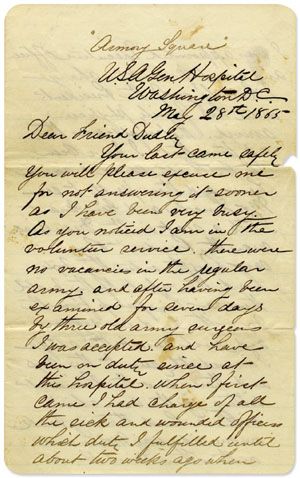 "Armory Square"
U.S.A. Gen Hospital
Washington D.C.
May 28th 1865
Dear Friend Dudley
Your last came safely
You will please excuse me
for not answering it sooner
as I have been very busy.
As you noticed I am in the
volunteer service. there were
no vacancies in the regular
army and after having been
examined for seven days
by three old army surgeons
I was accepted and have
been on duty since at
this hospital. When I first
came I had charge of all
the sick and wounded officers
which duty I fulfilled until
about two weeks ago when